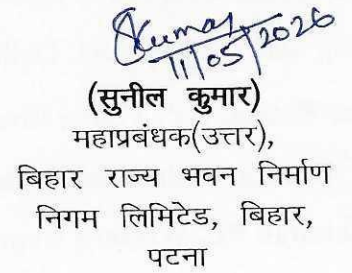 SKumar
11/05/2026
(सुनील कुमार)
महाप्रबंधक(उत्तर),
बिहार राज्य भवन निर्माण
निगम लिमिटेड, बिहार,
पटना